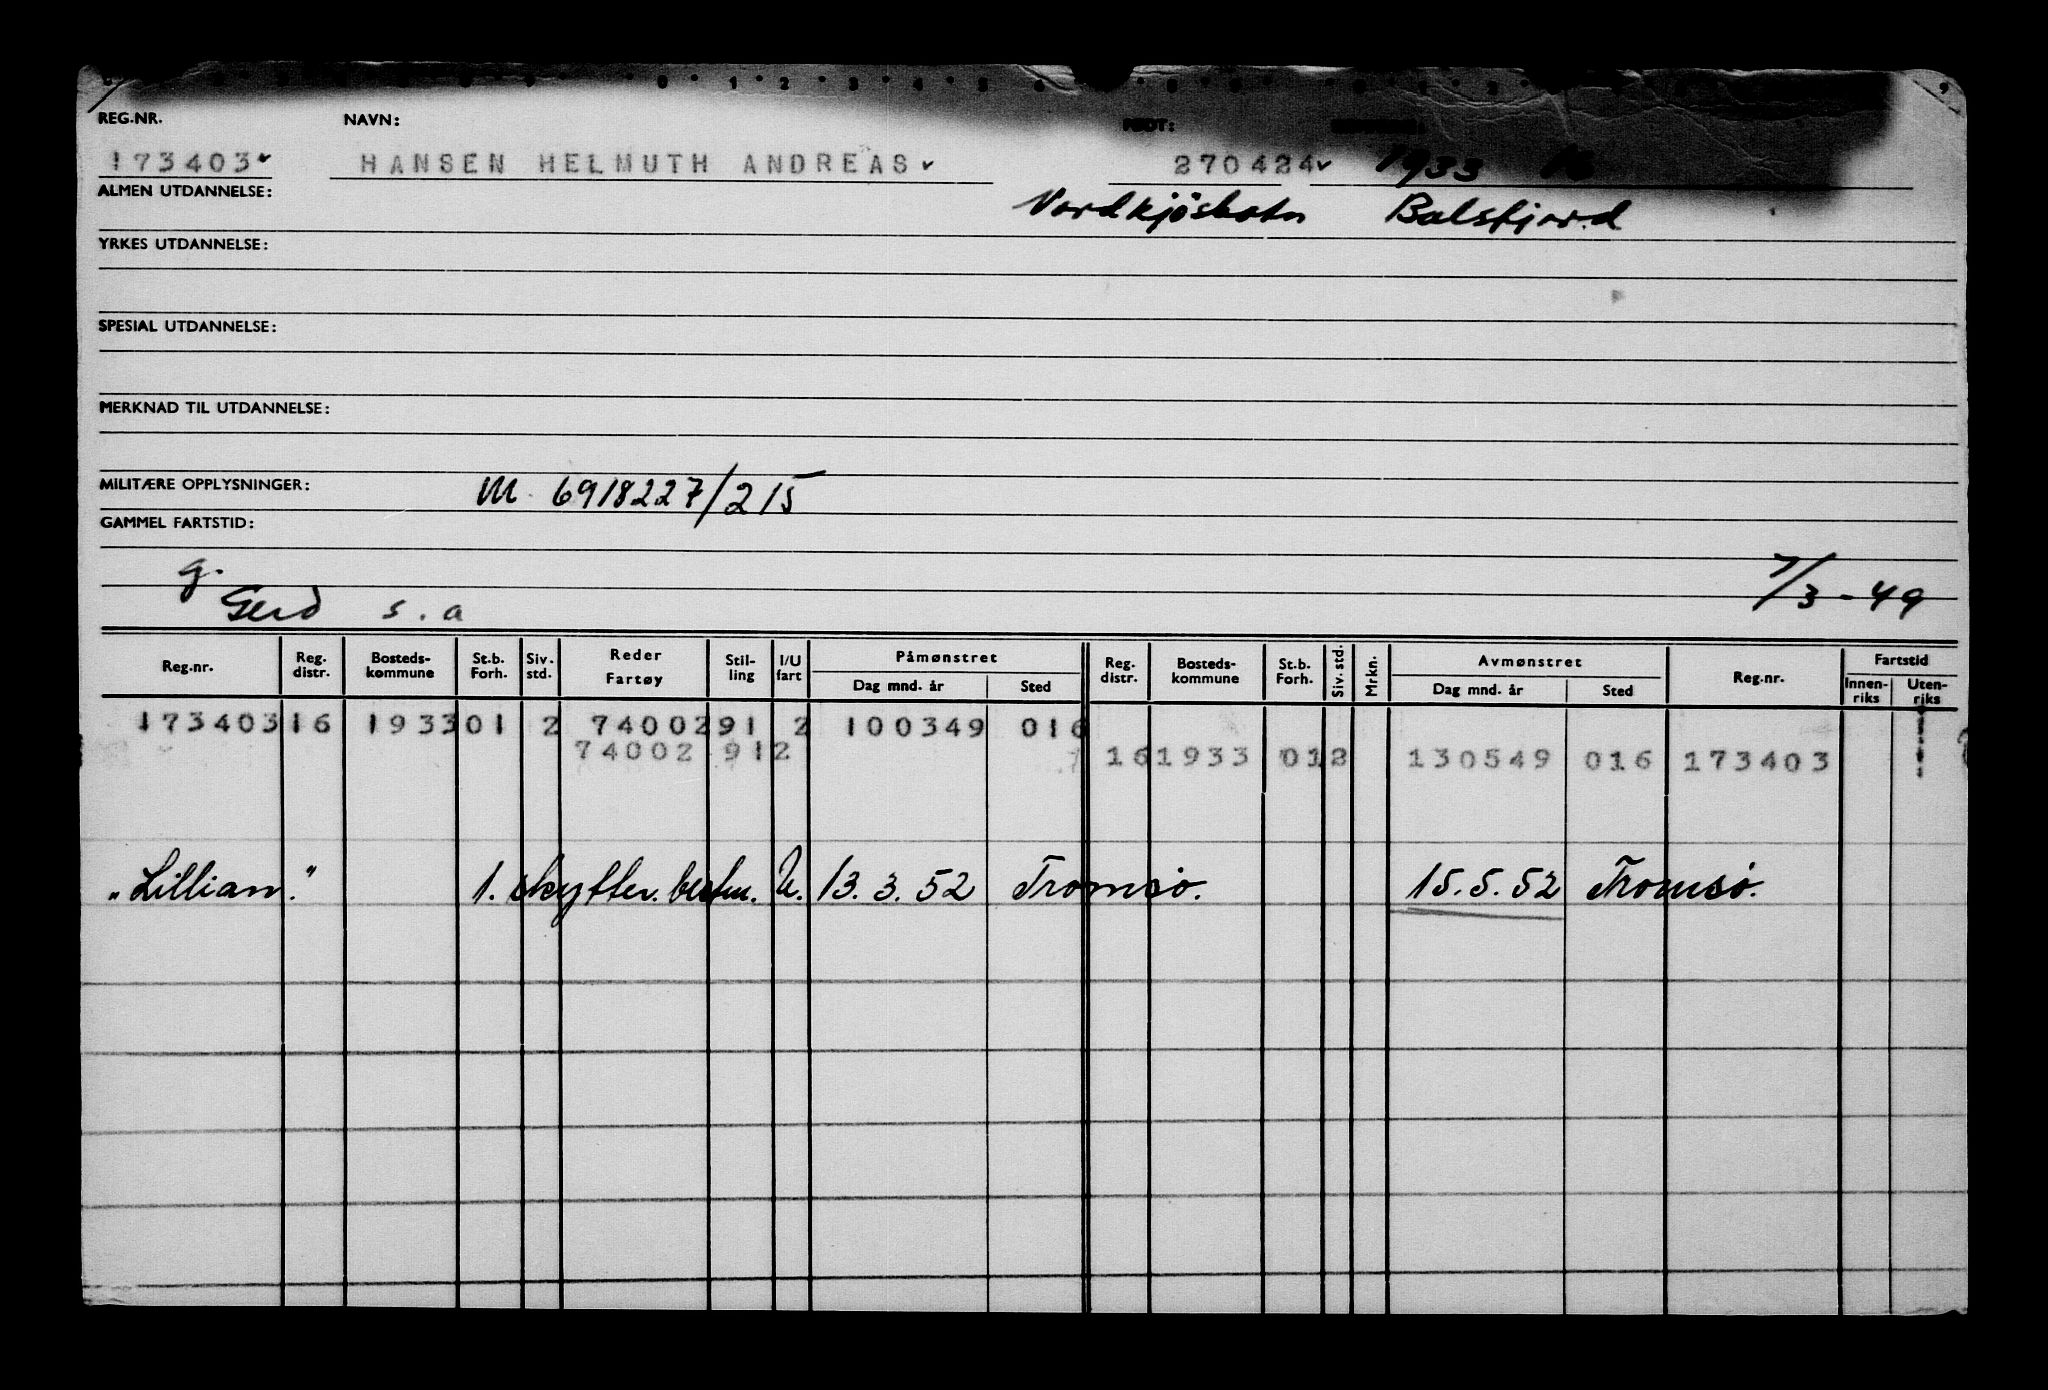 REG.NR. NAVN: FØDT:
173403 HANSEN HELMUTH ANDREAS 270424 1933 16
ALMEN UTDANNELSE: Nordkjösbotn Balsfjord
YRKES UTDANNELSE:
SPESIAL UTDANNELSE:
MERKNAD TIL UTDANNELSE:
MILITÆRE OPPLYSNINGER: M 6918227/215
GAMMEL FARTSTID:
g.
Gerd s.a 7/3-49
Reg.nr. Reg. distr. Bosteds-kommune St.b. Forh. Siv. std. Reder Fartøy Stil-ling I/U fart Påmønstret Dag mnd. år Sted Reg. distr. Bosteds-kommune St.b. Forh. Siv. std. Mrkn. Avmønstret Dag mnd. år Sted Reg.nr. Fartstid Innen-riks Uten-riks
173403 16 1933 01 2 74002 91 2 100349 016
74002 91 2 16 1933 01 2 130549 016 173403
"Lillian." 1. skytter. bestm. U. 13.3.52 Tromsø. 15.5.52 Tromsø.